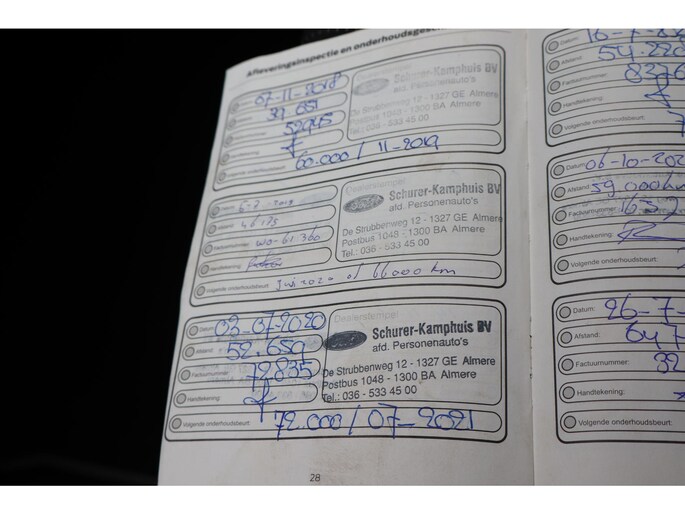 Afleveringsinspectie en onderhoudsges
07-11-2018
39 651
52945
60.000 / 11-2019
Schurer-Kamphuis BV
afd. Personenauto's
De Strubbenweg 12 - 1327 GE Almere
Postbus 1048 - 1300 BA Almere
Tel.: 036 - 533 45 00
46175
WO-61360
Handtekening:
Volgende onderhoudsbeurt:
Juli 2020 of 66000 km
Dealerstempel
Schurer-Kamphuis BV
afd. Personenauto's
De Strubbenweg 12 - 1327 GE Almere
Postbus 1048 - 1300 BA Almere
Tel.: 036 - 533 45 00
Datum:
03-07-2020
Afstand:
52.659
Factuurnummer:
72835
Handtekening:
Volgende onderhoudsbeurt:
72.000 / 07-2021
Dealerstempel
Ford
Schurer-Kamphuis BV
afd. Personenauto's
De Strubbenweg 12 - 1327 GE Almere
Postbus 1048 - 1300 BA Almere
Tel.: 036 - 533 45 00
28
Datum:
16-7-
Afstand:
54.220
Factuurnummer:
Handtekening:
Volgende onderhoudsbeurt:
Datum:
06-10-202
Afstand:
59.000km
Factuurnummer:
Handtekening:
Volgende onderhoudsbeurt:
Datum:
26-7-
Afstand:
647
Factuurnummer:
32
Handtekening:
Volgende onderhoudsbeurt: